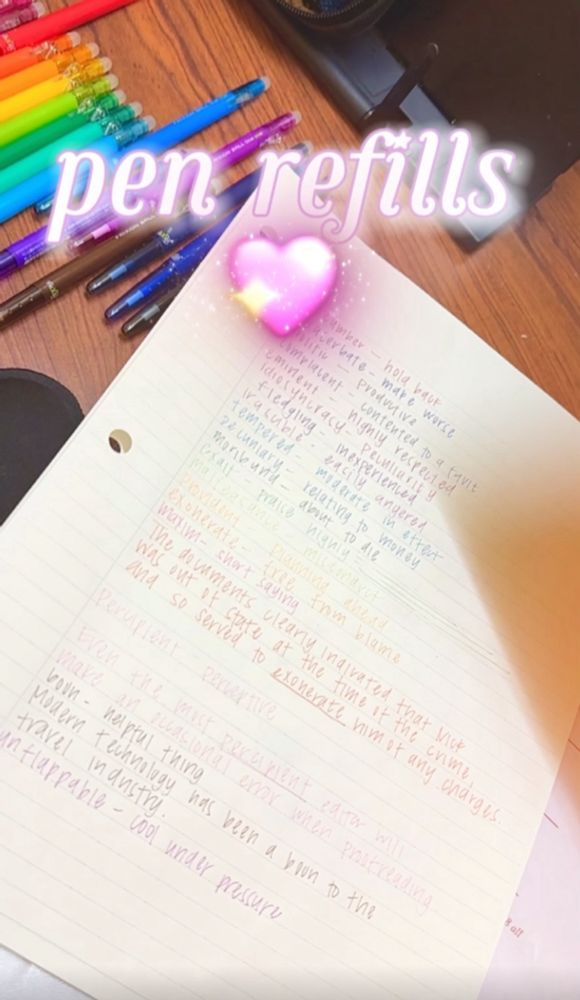 pen refills
hold back
make worse
politic - productive
complacent - contented to a fault
eminent - highly respected
idiosyncracy - peculiarity
fledgling - inexperienced
irascible - easily angered
tempered - moderate in effect
pecuniary - relating to money
moribund - about to die
exalt - praise highly
planning ahead
exonerate - free from blame
maxim - short saying
The documents clearly indicated that Nick
was out of state at the time of the crime
and so served to exonerate him of any charges.
Percipient - perceptive
Even the most percipient editor will
make an occasional error when proofreading
boon - helpful thing
Modern technology has been a boon to the
travel industry.
unflappable - cool under pressure